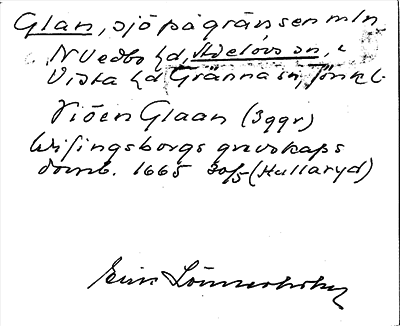 Glan, sjö på gränsen mln
N Vedbo hd, Adelövs sn, &
Vista hd Gränna sn, Jönk l.
Siöen Glaan (3 ggr)
Wisingsborgs grevskaps
domb. 1665 30/5 (Hullaryd)